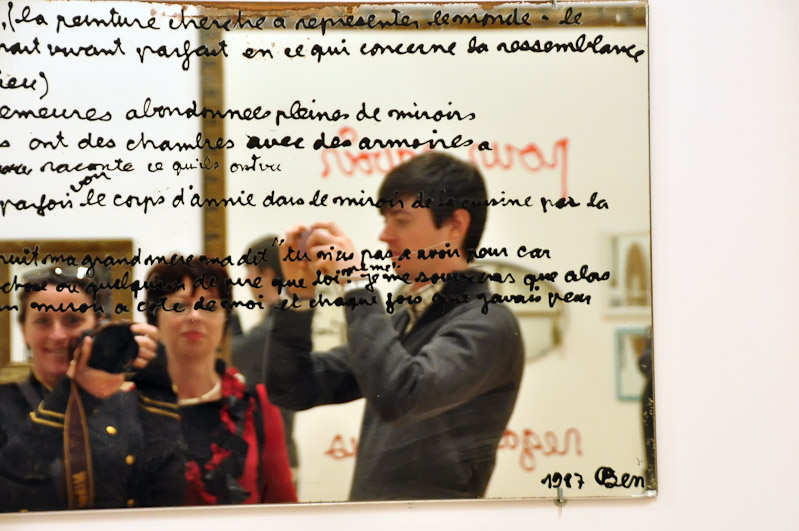 ,(la peinture cherche a representer le monde - le
rait vivant parfait en ce qui concerne la ressemblance
ieu)
emeures abondonnees pleines de miroirs
s ont des chambres avec des armoires a
raconte ce qu'ils ont vu
parfois voir le corps d'annie dans le miroir de la cuisine par la
nuit ma grand mere ma dit "tu n'as pas a avoir peur car
chose ou quelqu'un de pire que toi même". Je me souviens que alors
un miroir a cote de moi et chaque fois que j'avais peur
1987 Ben